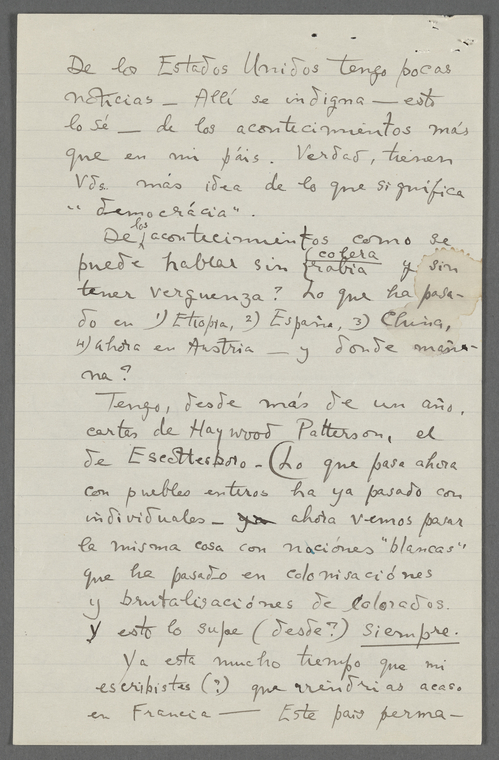 De los Estados Unidos tengo pocas
noticias — Allí se indigna — esto
lo sé — de los acontecimientos más
que en mi páis. Verdad, tienen
Vds. más idea de lo que significa
"democrácia".
De los acontecimientos como se
puede hablar sin {cólera rabia y sin
tener verguenza? Lo que ha pasa-
do en 1) Etiopia, 2) España, 3) China,
4) ahora en Austria — y donde maña-
na?
Tengo, desde más de un año,
cartas de Haywood Patterson, el
de Escottesboro — (Lo que pasa ahora
con pueblos enteros ha ya pasado con
individuales — ya ahora vemos pasar
la misma cosa con naciónes "blancas"
que ha pasado en colonisaciónes
y brutalisaciónes de Colorados.
Y esto lo supe (desde?) siempre.
Ya esta mucho tiempo que mi
escribistes (?) que vendrias acaso
en Francia — Este pais perma-